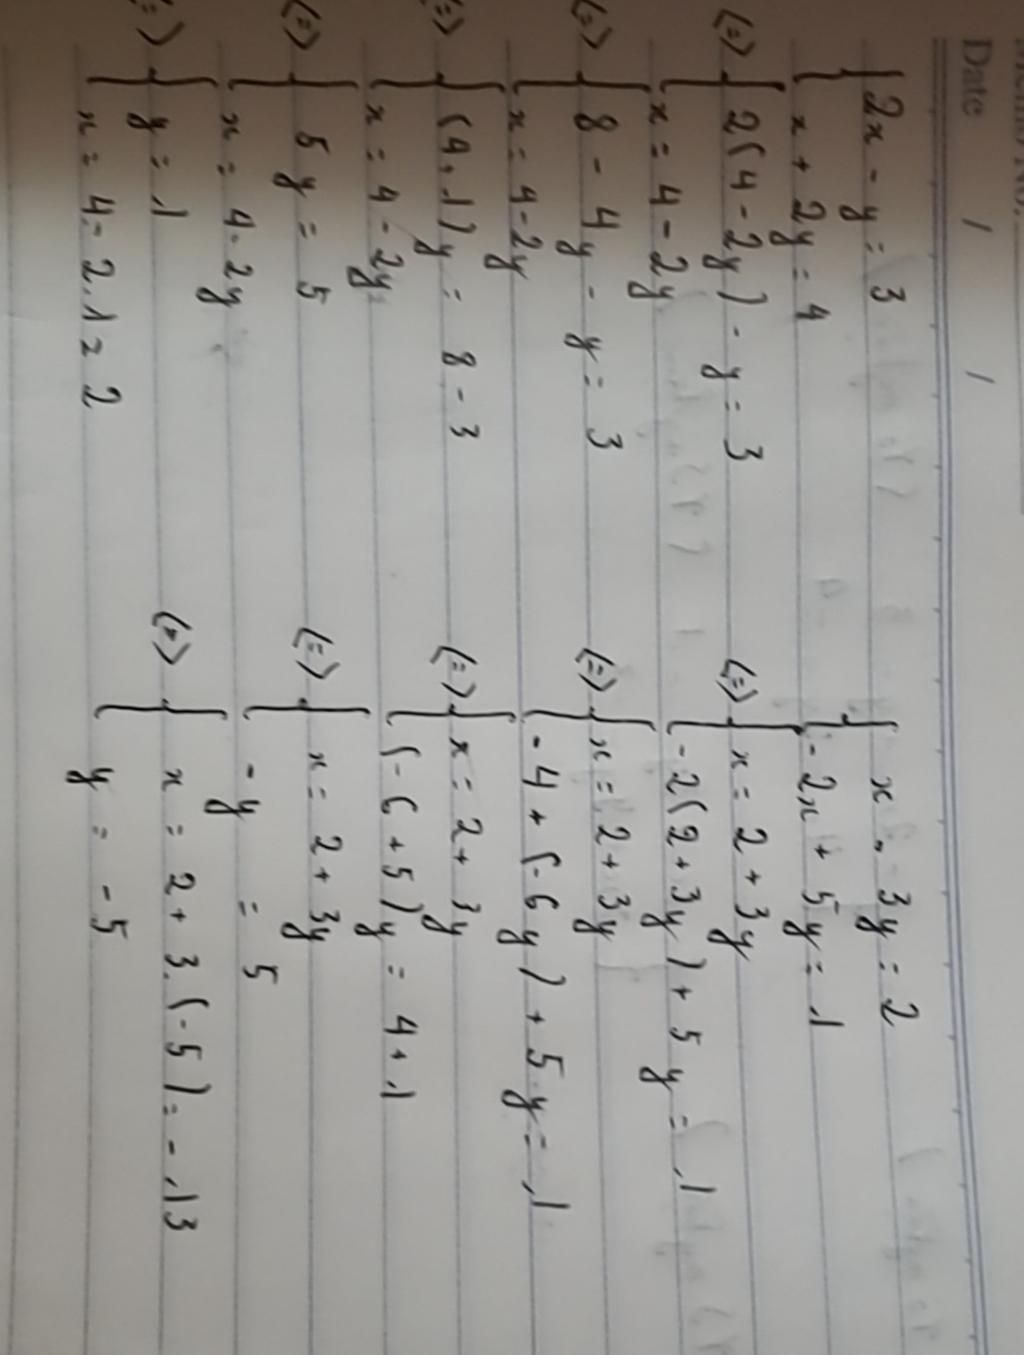 Date / /
2x - y = 3
x + 2y = 4
(=) 2(4 - 2y) - y = 3
x = 4 - 2y
(=) 8 - 4y - y = 3
x = 4 - 2y
(4+1)y = 8 - 3
x = 4 - 2y
(=) 5y = 5
x = 4 - 2y
y = 1
x = 4 - 2.1 = 2
x - 3y = 2
-2x + 5y = 1
(=) x = 2 + 3y
-2(2 + 3y) + 5y = 1
(=) x = 2 + 3y
-4 + (-6y) + 5y = 1
(=) x = 2 + 3y
(-6 + 5)y = 4 + 1
(=) x = 2 + 3y
-y = 5
(=) x = 2 + 3.(-5) = -13
y = -5